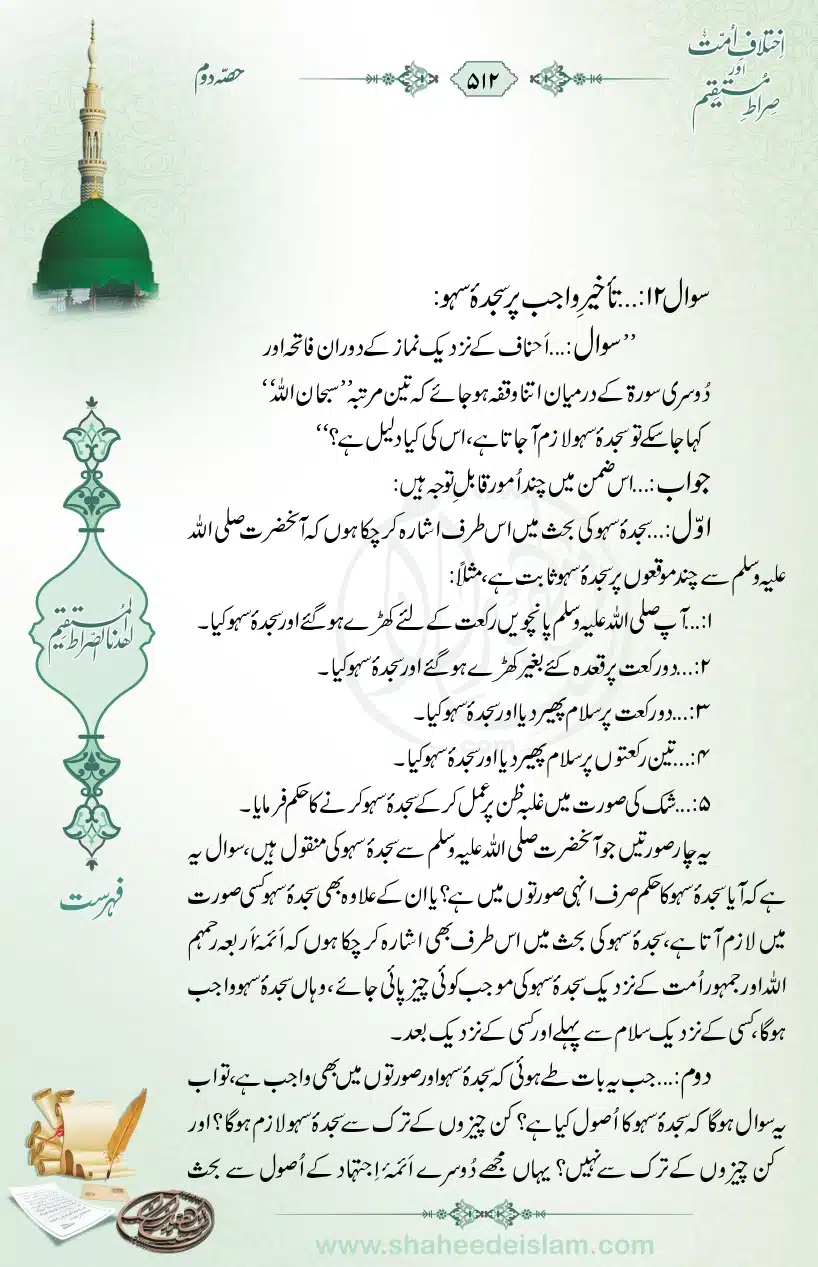 اِختلافِ اُمّت
اور
صراطِ مُستقیم
۵۱۲
حصّہ دوم
سوال۱۲:...تأخیرِ واجب پر سجدۂ سہو:
’’سوال:...اَحناف کے نزدیک نماز کے دوران فاتحہ اور
دُوسری سورۃ کے درمیان اتنا وقفہ ہوجائے کہ تین مرتبہ ’’سبحان اللہ‘‘
کہا جاسکے تو سجدۂ سہو لازم آجاتا ہے، اس کی کیا دلیل ہے؟‘‘
جواب:...اس ضمن میں چند اُمور قابلِ توجہ ہیں:
اوّل:...سجدۂ سہو کی بحث میں اس طرف اشارہ کرچکا ہوں کہ آنحضرت صلی اللہ
علیہ وسلم سے چند موقعوں پر سجدۂ سہو ثابت ہے، مثلاً:
۱:...آپ صلی اللہ علیہ وسلم پانچویں رکعت کے لئے کھڑے ہوگئے اور سجدۂ سہو کیا۔
۲:...دو رکعت پر قعدہ کئے بغیر کھڑے ہوگئے اور سجدۂ سہو کیا۔
۳:...دو رکعت پر سلام پھیر دیا اور سجدۂ سہو کیا۔
۴:...تین رکعتوں پر سلام پھیر دیا اور سجدۂ سہو کیا۔
۵:...شک کی صورت میں غلبہ ظن پر عمل کرکے سجدۂ سہو کرنے کا حکم فرمایا۔
یہ چار صورتیں جو آنحضرت صلی اللہ علیہ وسلم سے سجدۂ سہو کی منقول ہیں، سوال یہ
ہے کہ آیا سجدۂ سہو کا حکم صرف انہی صورتوں میں ہے؟ یا ان کے علاوہ بھی سجدۂ سہو کسی صورت
میں لازم آتا ہے، سجدۂ سہو کی بحث میں اس طرف بھی اشارہ کرچکا ہوں کہ اَئمۂ اَربعہ رحمہم
اللہ اور جمہور اُمت کے نزدیک سجدۂ سہو کی موجب کوئی چیز پائی جائے، وہاں سجدۂ سہو واجب
ہوگا، کسی کے نزدیک سلام سے پہلے اور کسی کے نزدیک بعد۔
دوم:...جب یہ بات طے ہوئی کہ سجدۂ سہو اور صورتوں میں بھی واجب ہے، تو اب
یہ سوال ہوگا کہ سجدۂ سہو کا اُصول کیا ہے؟ کن چیزوں کے ترک سے سجدۂ سہو لازم ہوگا؟ اور
کن چیزوں کے ترک سے نہیں؟ یہاں مجھے دُوسرے اَئمۂ اِجتہاد کے اُصول سے بحث
اھدنا الصّراط المُستقیم
فہرست
www.shaheedeislam.com